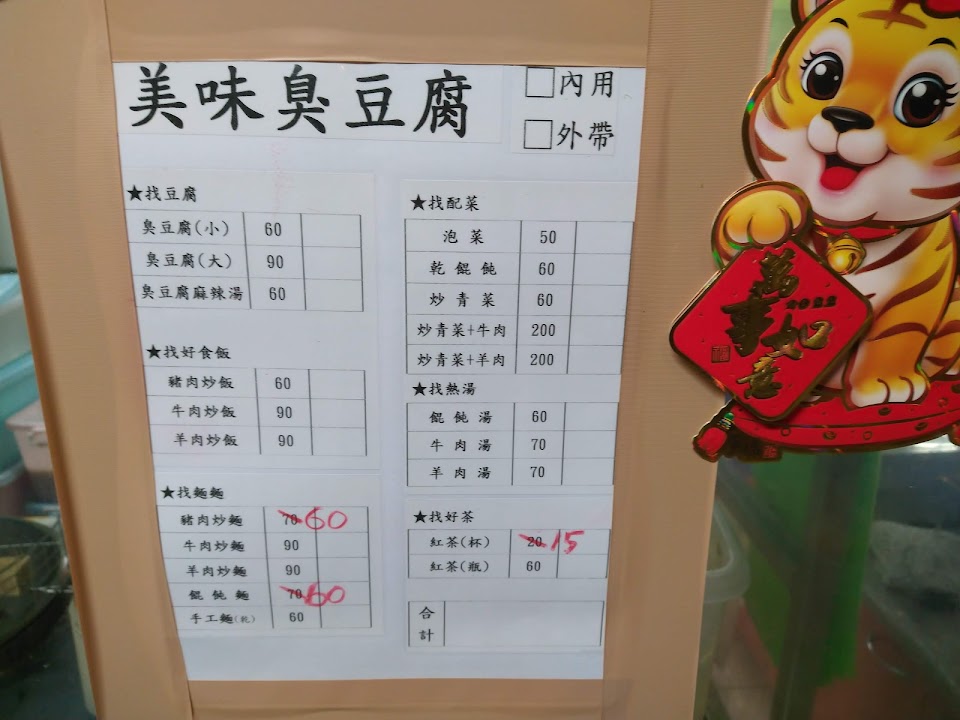 美味臭豆腐
□內用
□外帶
★找豆腐
臭豆腐(小) 60
臭豆腐(大) 90
臭豆腐麻辣湯 60
★找好食飯
豬肉炒飯 60
牛肉炒飯 90
羊肉炒飯 90
★找麵麵
豬肉炒麵 70 60
牛肉炒麵 90
羊肉炒麵 90
餛飩麵 70 60
手工麵(乾) 60
★找配菜
泡菜 50
乾餛飩 60
炒青菜 60
炒青菜+牛肉 200
炒青菜+羊肉 200
★找熱湯
餛飩湯 60
牛肉湯 70
羊肉湯 70
★找好茶
紅茶(杯) 20 15
紅茶(瓶) 60
合計
萬事如意
2022